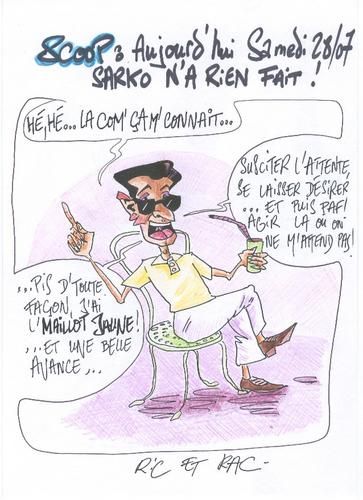 SCOOP : Aujourd'hui Samedi 28/07
SARKO N'A RIEN FAIT !
HÉ, HÉ... LA COM' ÇA M' CONNAIT...
SUSCITER L'ATTENTE,
SE LAISSER DÉSIRER
... ET PUIS PAF!
AGIR LÀ OU ON
NE M'ATTEND PAS!
...PIS D'TOUTE
FAÇON, J'AI
L'MAILLOT JAUNE!
...ET UNE BELLE
AVANCE...
RIC ET RAC-